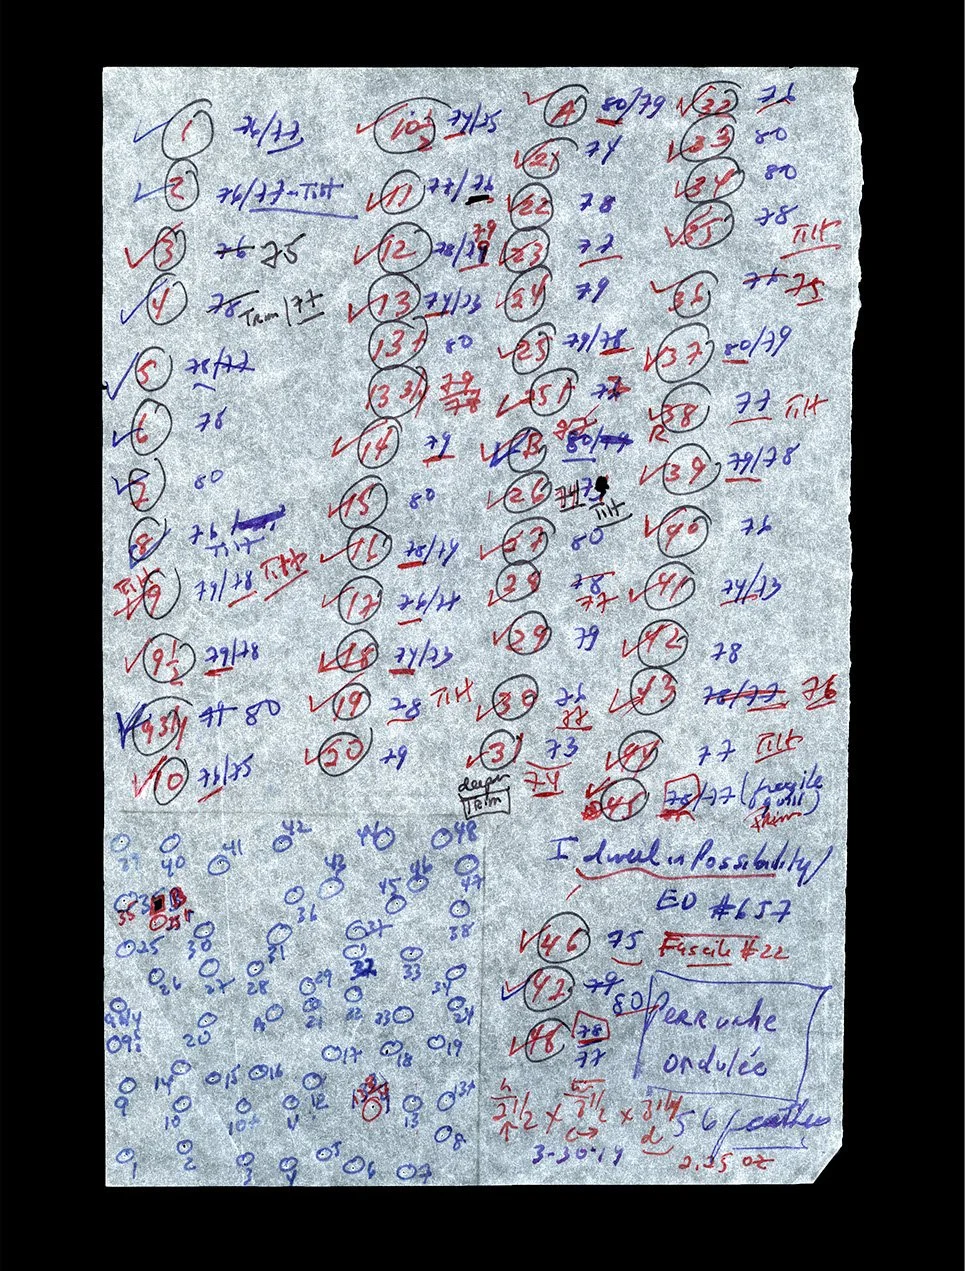 1 76/77
2 76/77-Tilt
3 76 75
4 78 Trim/77
5 78/77
6 76
7 80
8 76/ Tilt
Tilt 9 79/78 Tilt
9 1/2 79/78
9 3/4 77 80
10 76/75
10 1/2 74/75
11 77/76
12 78/79 79
13 74/73
13+ 80
13 3/4 79 78
14 79
15 80
16 78/79
17 76/77
18 74/73
19 78 Tilt
20 79
A 80/79
21 74
22 78
23 77
24 79
25 79/78
25+
B 80/79
26 Tilt
27 80
28 78 77
29 79
30 76 77
31 73 74
deeper
Trim
32 76
33 80
34 80
35 78 Tilt
36 75
37 80/79
38 77 Tilt
R
39 79/78
40 76
41 74/73
42 78
43 78/77 76
44 77 Tilt
45 78/77 (fragile quill)
Trim
I dwell in Possibility/
ED #657
Fascile #22
46 75
47 79 80
48 78 77
Perruche
ondulée
56 feathers
2.25 oz
h 2 1/2 x w 3 1/2 x 3 1/4 d
3-30-19
42 44 48
39 40 41
43 45 46 47
35 B 35+ 36 37 38
25 30 31 32 33 34
26 27 28 29
9 3/4 20 A 21 22 23 24
9 1/2 17 18 19
9 14 15 16
10 10+ 11 12 13 13+
8
1 2 3 4 5 6 7